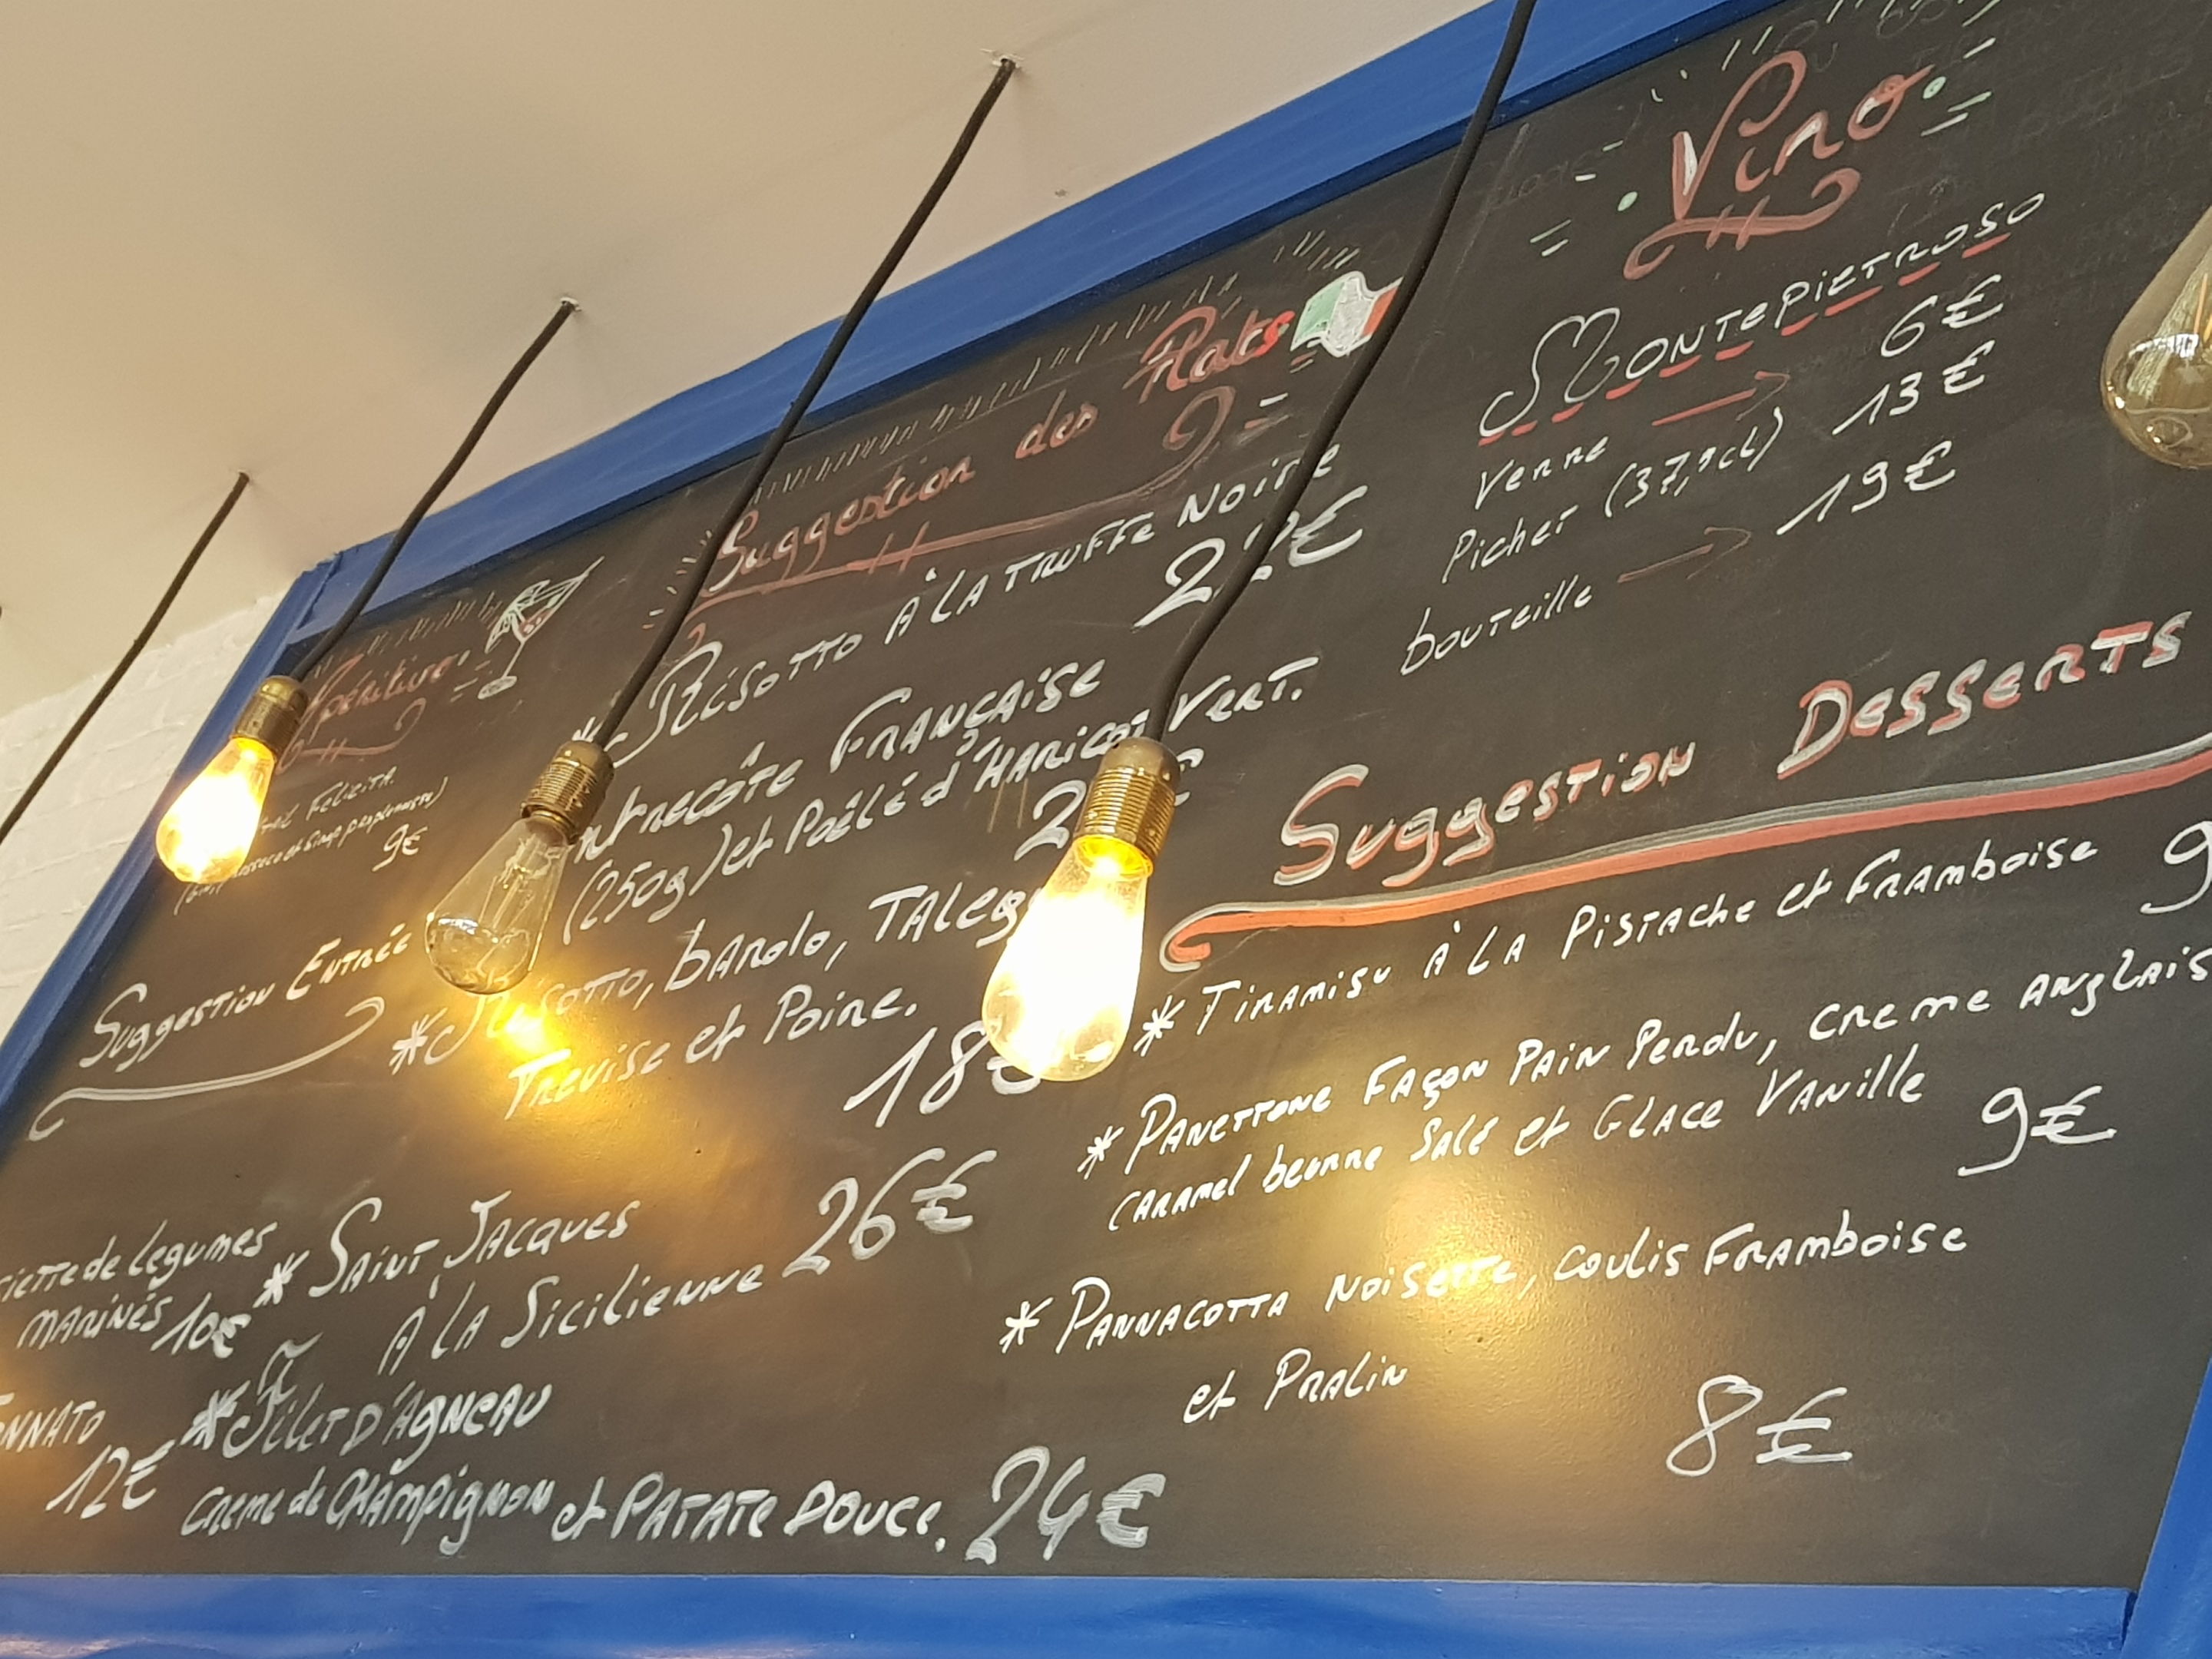 Apéritivo
Felicita
9€
Suggestion Entrée
de legumes
marinés 10€
12€
Suggestion des Plats
* Risotto à la truffe Noire
Entrecôte Française
(250g) et Poêlé d'Haricot Vert.
* Risotto, barolo,
Trevise et Poire.
18€
* Saint Jacques
à la Sicilienne 26€
* Filet d'Agneau
creme de Champignon et Patate Douce. 24€
Vino
Montepietroso
Verre → 6€
Pichet 13€
bouteille → 19€
Suggestion Desserts
* Tiramisu à la Pistache et Framboise 9
* Panettone Façon Pain Perdu, creme
caramel beurre Salé et Glace Vanille
9€
* Pannacotta Noisette, coulis Framboise
et Pralin
8€